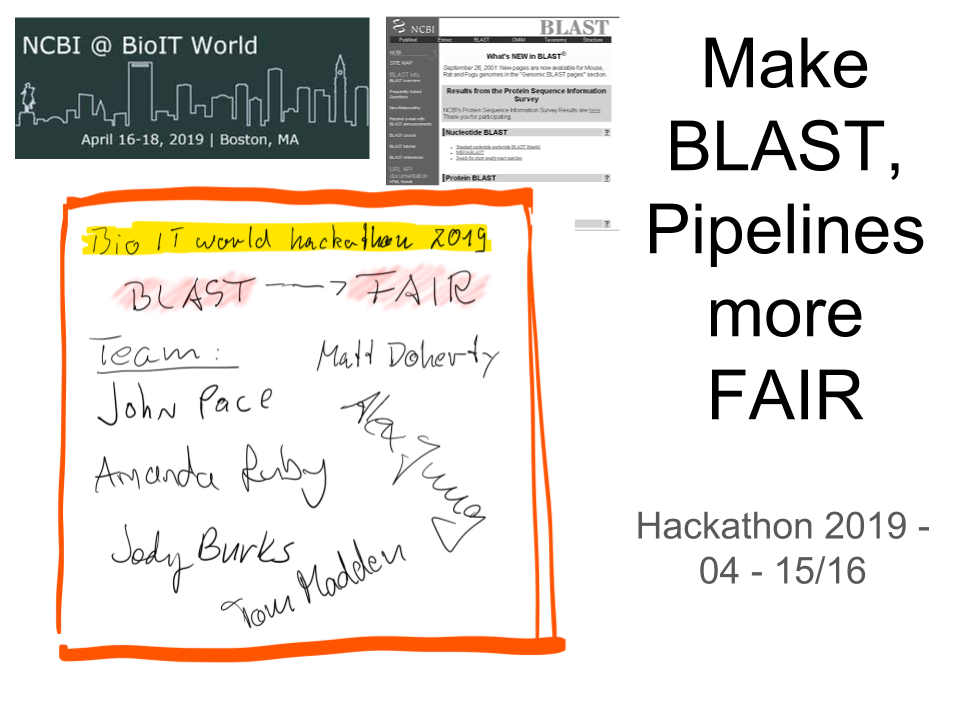 NCBI @ BioIT World
April 16-18, 2019 | Boston, MA
NCBI
BLAST
PubMed Entrez BLAST OMIM Taxonomy Structure
NCBI
SITE MAP
BLAST info
BLAST overview
Frequently Asked
Questions
New/Noteworthy
Receive e-mail with
BLAST announcements
BLAST tutorial
BLAST references
URL API
documentation
HTML format
What's NEW in BLAST®
September 26, 2001: New pages are now available for Mouse,
Rat and Fugu genomes in the "Genomic BLAST pages" section.
Results from the Protein Sequence Information
Survey
NCBI's Protein Sequence Information Survey Results are here.
Thank you for participating.
Nucleotide BLAST ?
Standard nucleotide-nucleotide BLAST [blastn]
MEGABLAST
Search for short nearly exact matches
Protein BLAST ?
?
Make
BLAST,
Pipelines
more
FAIR
Hackathon 2019 -
04 - 15/16
Bio IT world hackathon 2019
BLAST → FAIR
Team: Matt Doherty
John Pace
Amanda Ruby
Jody Burks
Tom Madden